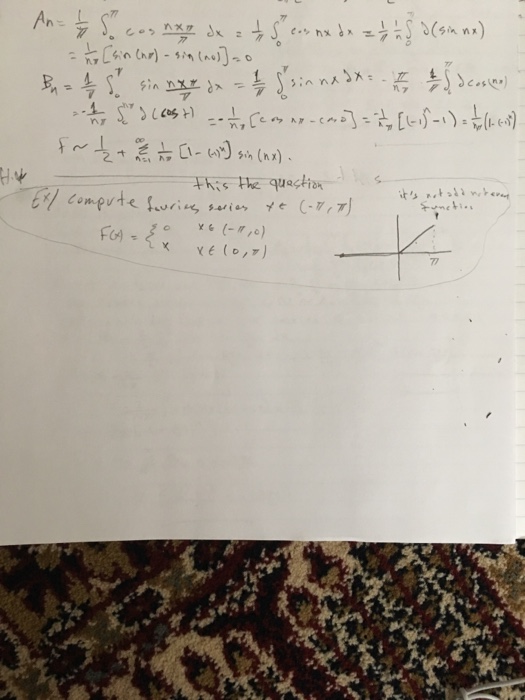 An = 1/π ∫₀^π cos nxπ/π dx = 1/π ∫₀^π cos nx dx = 1/π 1/n ∫₀^π d(sin nx)
= 1/nπ [sin(nπ) - sin(n0)] = 0
Bn = 1/π ∫₀^π sin nxπ/π dx = 1/π ∫₀^π sin nx dx = - 1/π ∫₀^π d cos(nx)
= - 1/nπ ∫₀^nπ d(cos t) = - 1/nπ [cos nπ - cos 0] = - 1/nπ [(-1)ⁿ - 1] = 1/nπ (1-(-1)ⁿ)
F ~ 1/2 + Σ_{n=1}^∞ 1/nπ [1-(-1)ⁿ] sin(nx).
H.w this the question
Ex/ compute fouries series x ∈ (-π, π)
it's not odd nor even function
F(x) = { 0 x ∈ (-π, 0)
x x ∈ (0, π)
π